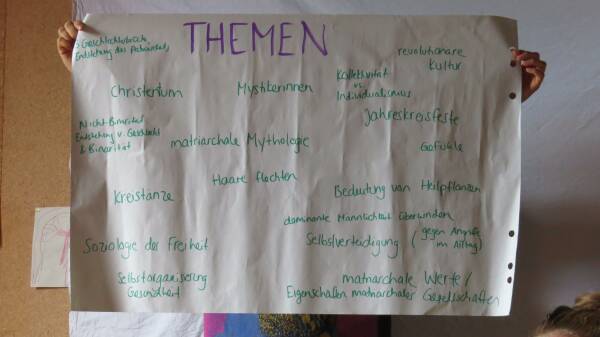 THEMEN
Geschlechterbrüche,
Entstehung des Patriarchats
revolutionäre
Kultur
Christentum
Mystikerinnen
Kollektivität
vs.
Individualismus
Jahreskreisfeste
Nicht-Binarität
Entstehung v. Geschlecht
& Binarität
matriarchale Mythologie
Gefühle
Haare flechten
Kreistänze
Bedeutung von Heilpflanzen
dominante Männlichkeit überwinden
Soziologie der Freiheit
Selbstverteidigung (gegen Angriffe
im Alltag)
Selbstorganisierung
Gesundheit
matriarchale Werte/
Eigenschaften matriarchaler Gesellschaften